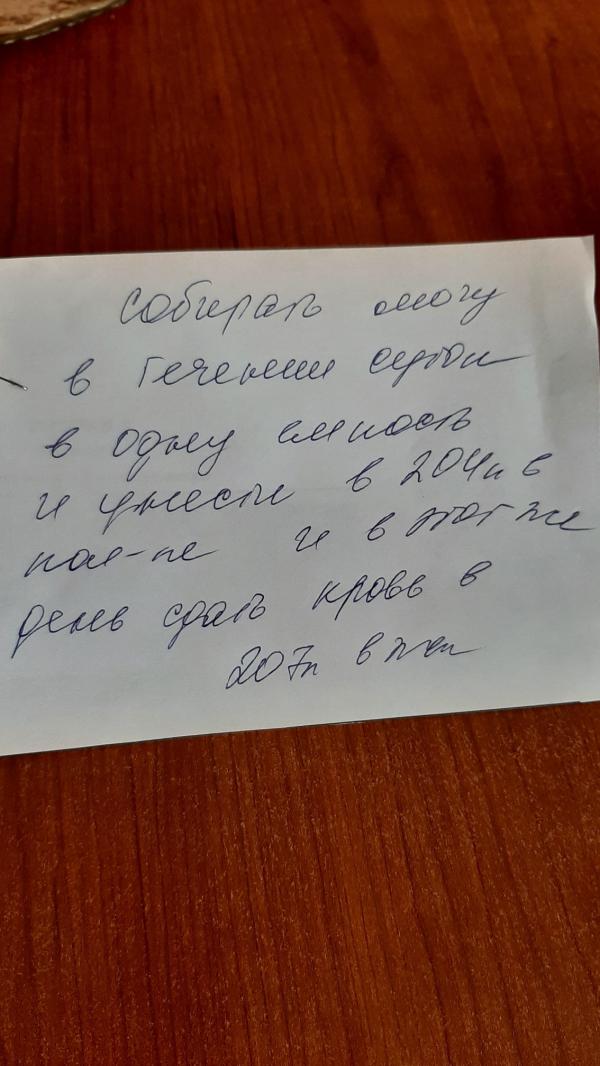 собирать мочу
в течении суток
в одну емкость
и унести в 204к в
пол-ке и в этот же
день сдать кровь в
207к в ж/к